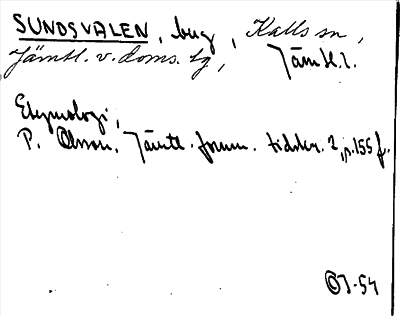 SUNDSVALEN, bug, Kalls sn,
Jämtl. v. doms. tg, Jämtl. l.
Etymologi,
P. Olsson, Jämtl. fornm. tidskr. 2, p. 155 f.
OJ-54